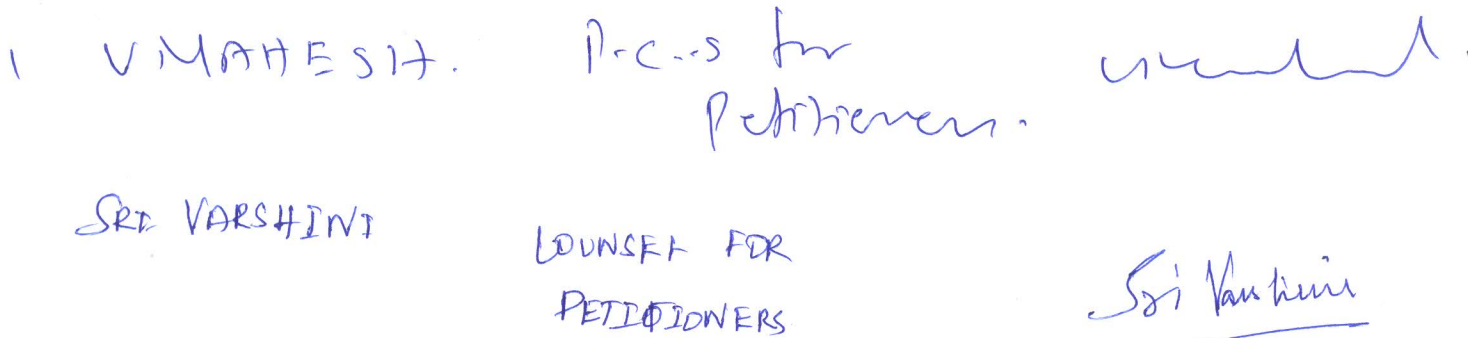 1 V MAHESH. P.C.S for
Petitioners.
SRI VARSHINI
COUNSEL FOR
PETITIONERS
Sri Varshini